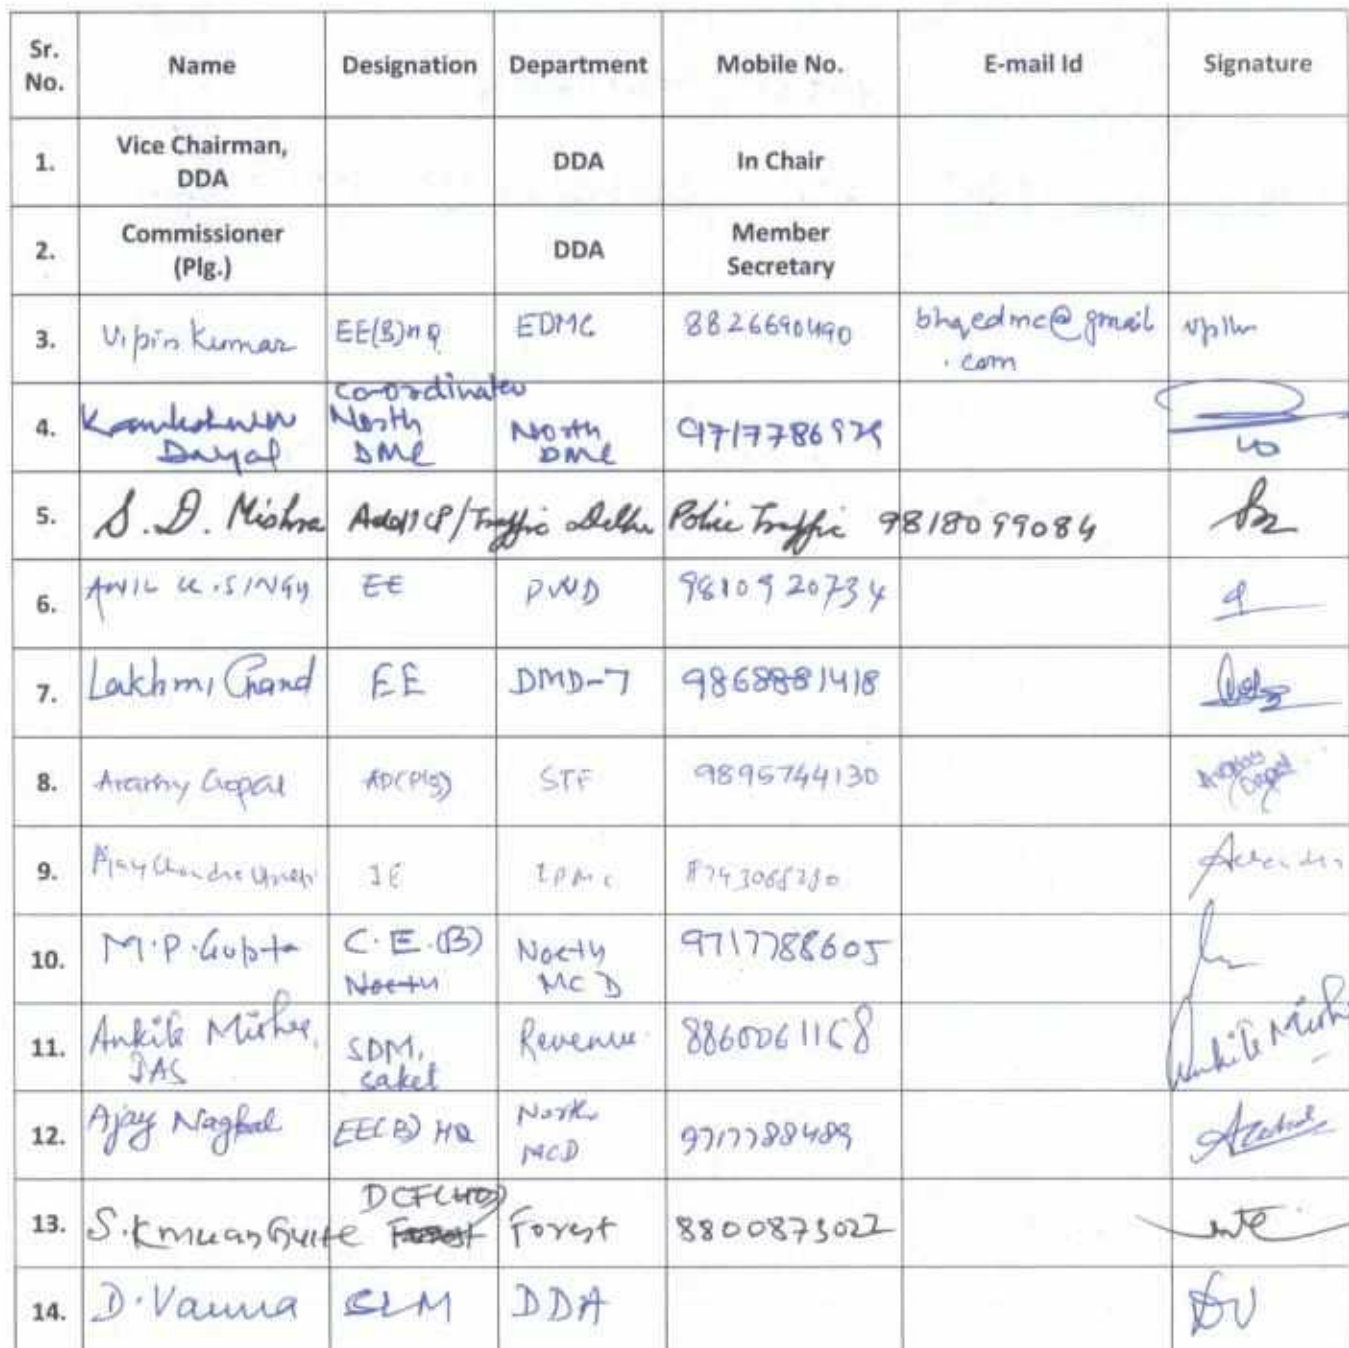 Sr. No. Name Designation Department Mobile No. E-mail Id Signature
1. Vice Chairman, DDA DDA In Chair
2. Commissioner (Plg.) DDA Member Secretary
3. Vipin Kumar EE(B)HQ EDMC 8826690490 bhqedmc@gmail
.com
4. Dayal Co-ordinator North DMC North DMC
5. S. D. Mishra Addl CP/Traffic Delhi Police Traffic 9818099084
6. ANIL K. SINGH EE PWD 9810920734
7. Lakhmi Chand EE DMD-7 9868881418
8. Arathy Gopal AD(Plg) STF 9895744130
9. Ajay JE
10. M.P. Gupta C.E.(B) North North MCD 9717788605
11. Ankita Mishra, IAS SDM, Saket Revenue 8860061168 Ankita Mishra
12. Ajay Nagpal EE(B) HQ North MCD 9717788489
13. Forest 8800873022
14. D. Vanna DDA DV